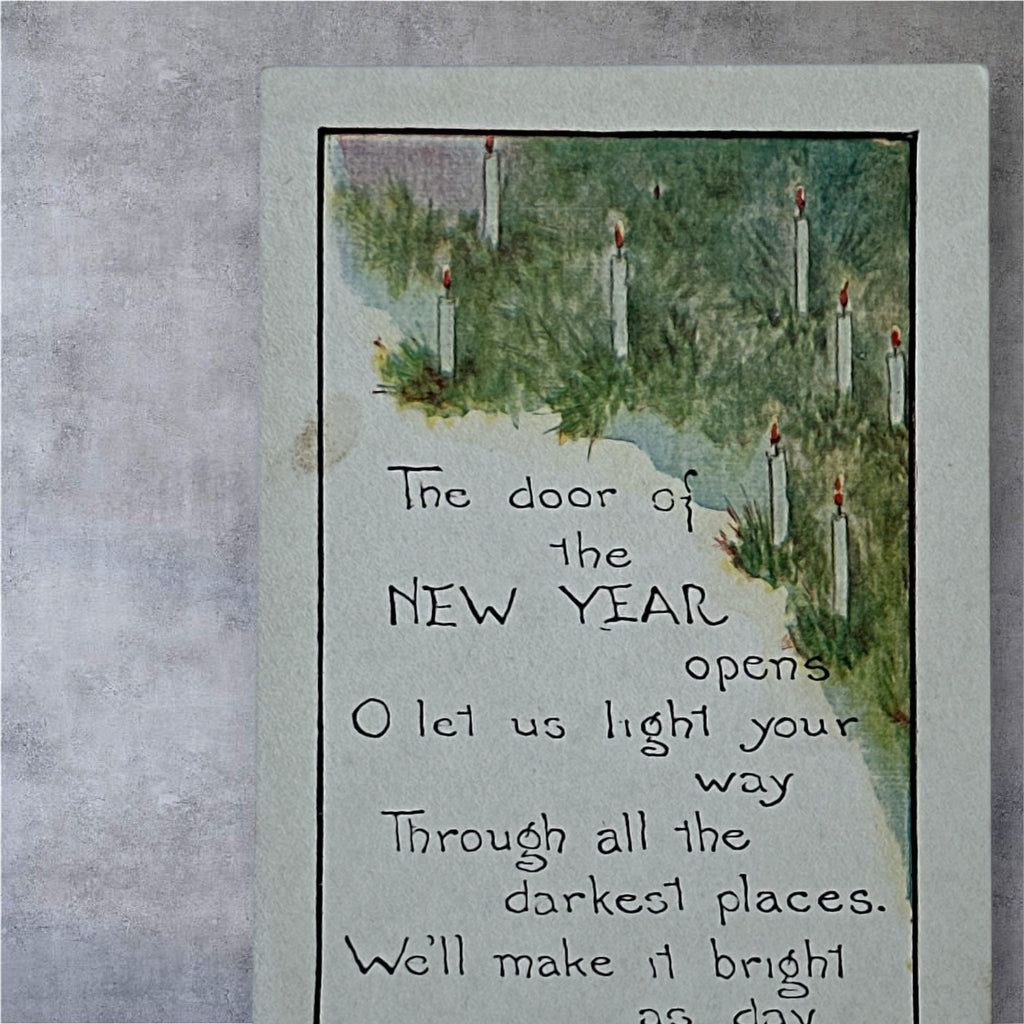 The door of
the
NEW YEAR
opens
O let us light your
way
Through all the
darkest places.
We'll make it bright
as day